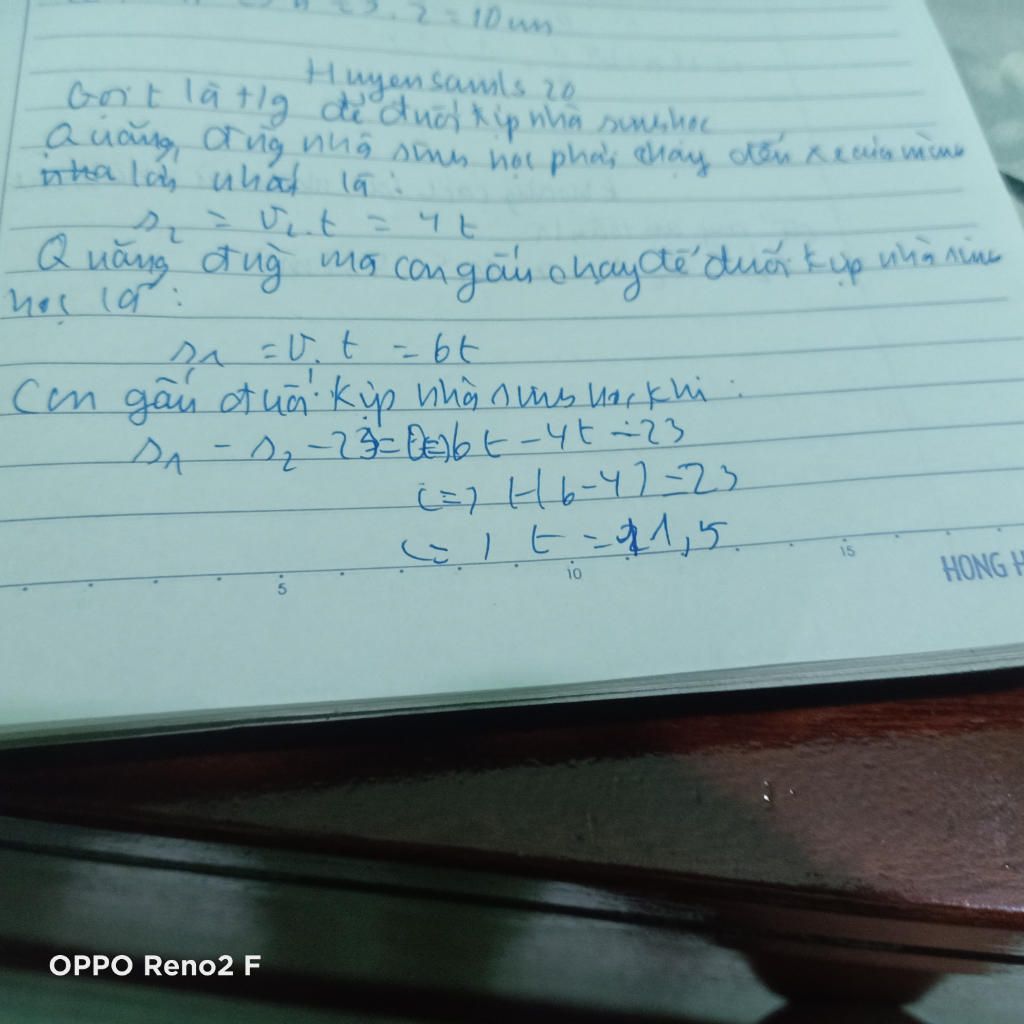 = 10 cm
Huyensamls 20
Gọi t là tlg để đuổi kịp nhà sinh học
Quãng đng nhà sinh học phải chạy đến xe của mình
lớn nhất là:
s₂ = v₂.t = 4t
Quãng đng mà con gấu chạy để đuổi kịp nhà sinh
học là:
s₁ = v.t = 6t
Con gấu đuổi kịp nhà sinh học khi:
s₁ - s₂ - 23 = 0 <=> 6t - 4t = 23
<=> t(6-4) = 23
<=> t = 11,5
5 10 15
HONG H
OPPO Reno2 F